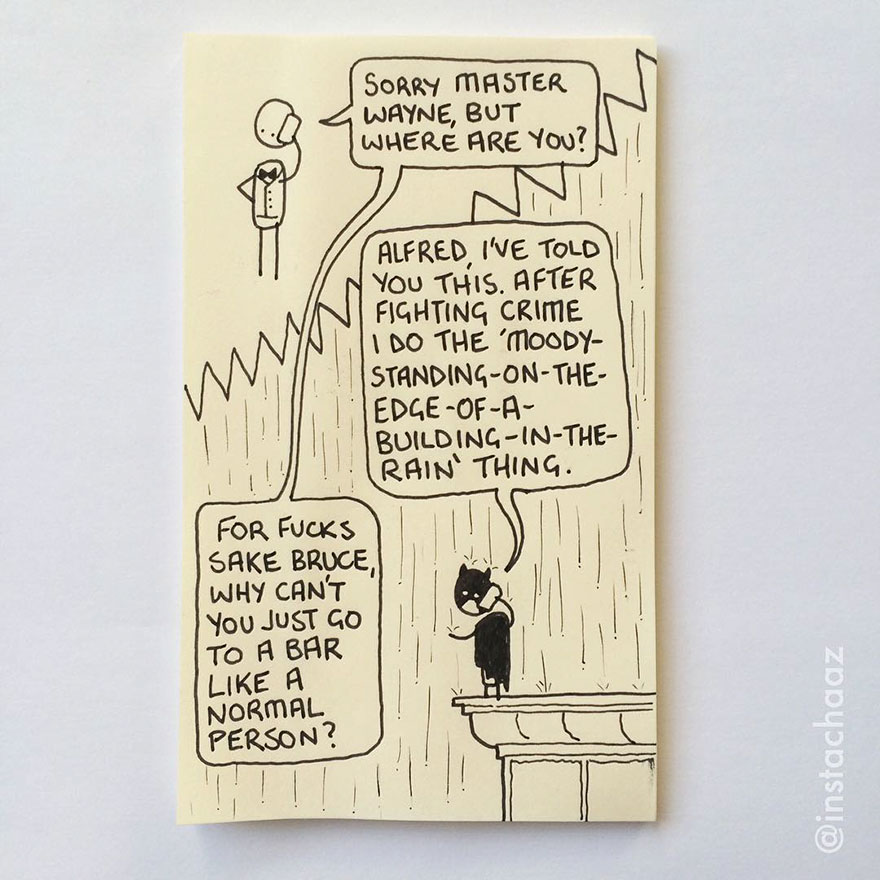 SORRY MASTER
WAYNE, BUT
WHERE ARE YOU?
ALFRED, I'VE TOLD
YOU THIS. AFTER
FIGHTING CRIME
I DO THE 'MOODY-
STANDING-ON-THE-
EDGE-OF-A-
BUILDING-IN-THE-
RAIN' THING.
FOR FUCKS
SAKE BRUCE,
WHY CAN'T
YOU JUST GO
TO A BAR
LIKE A
NORMAL
PERSON?
@instachaaz